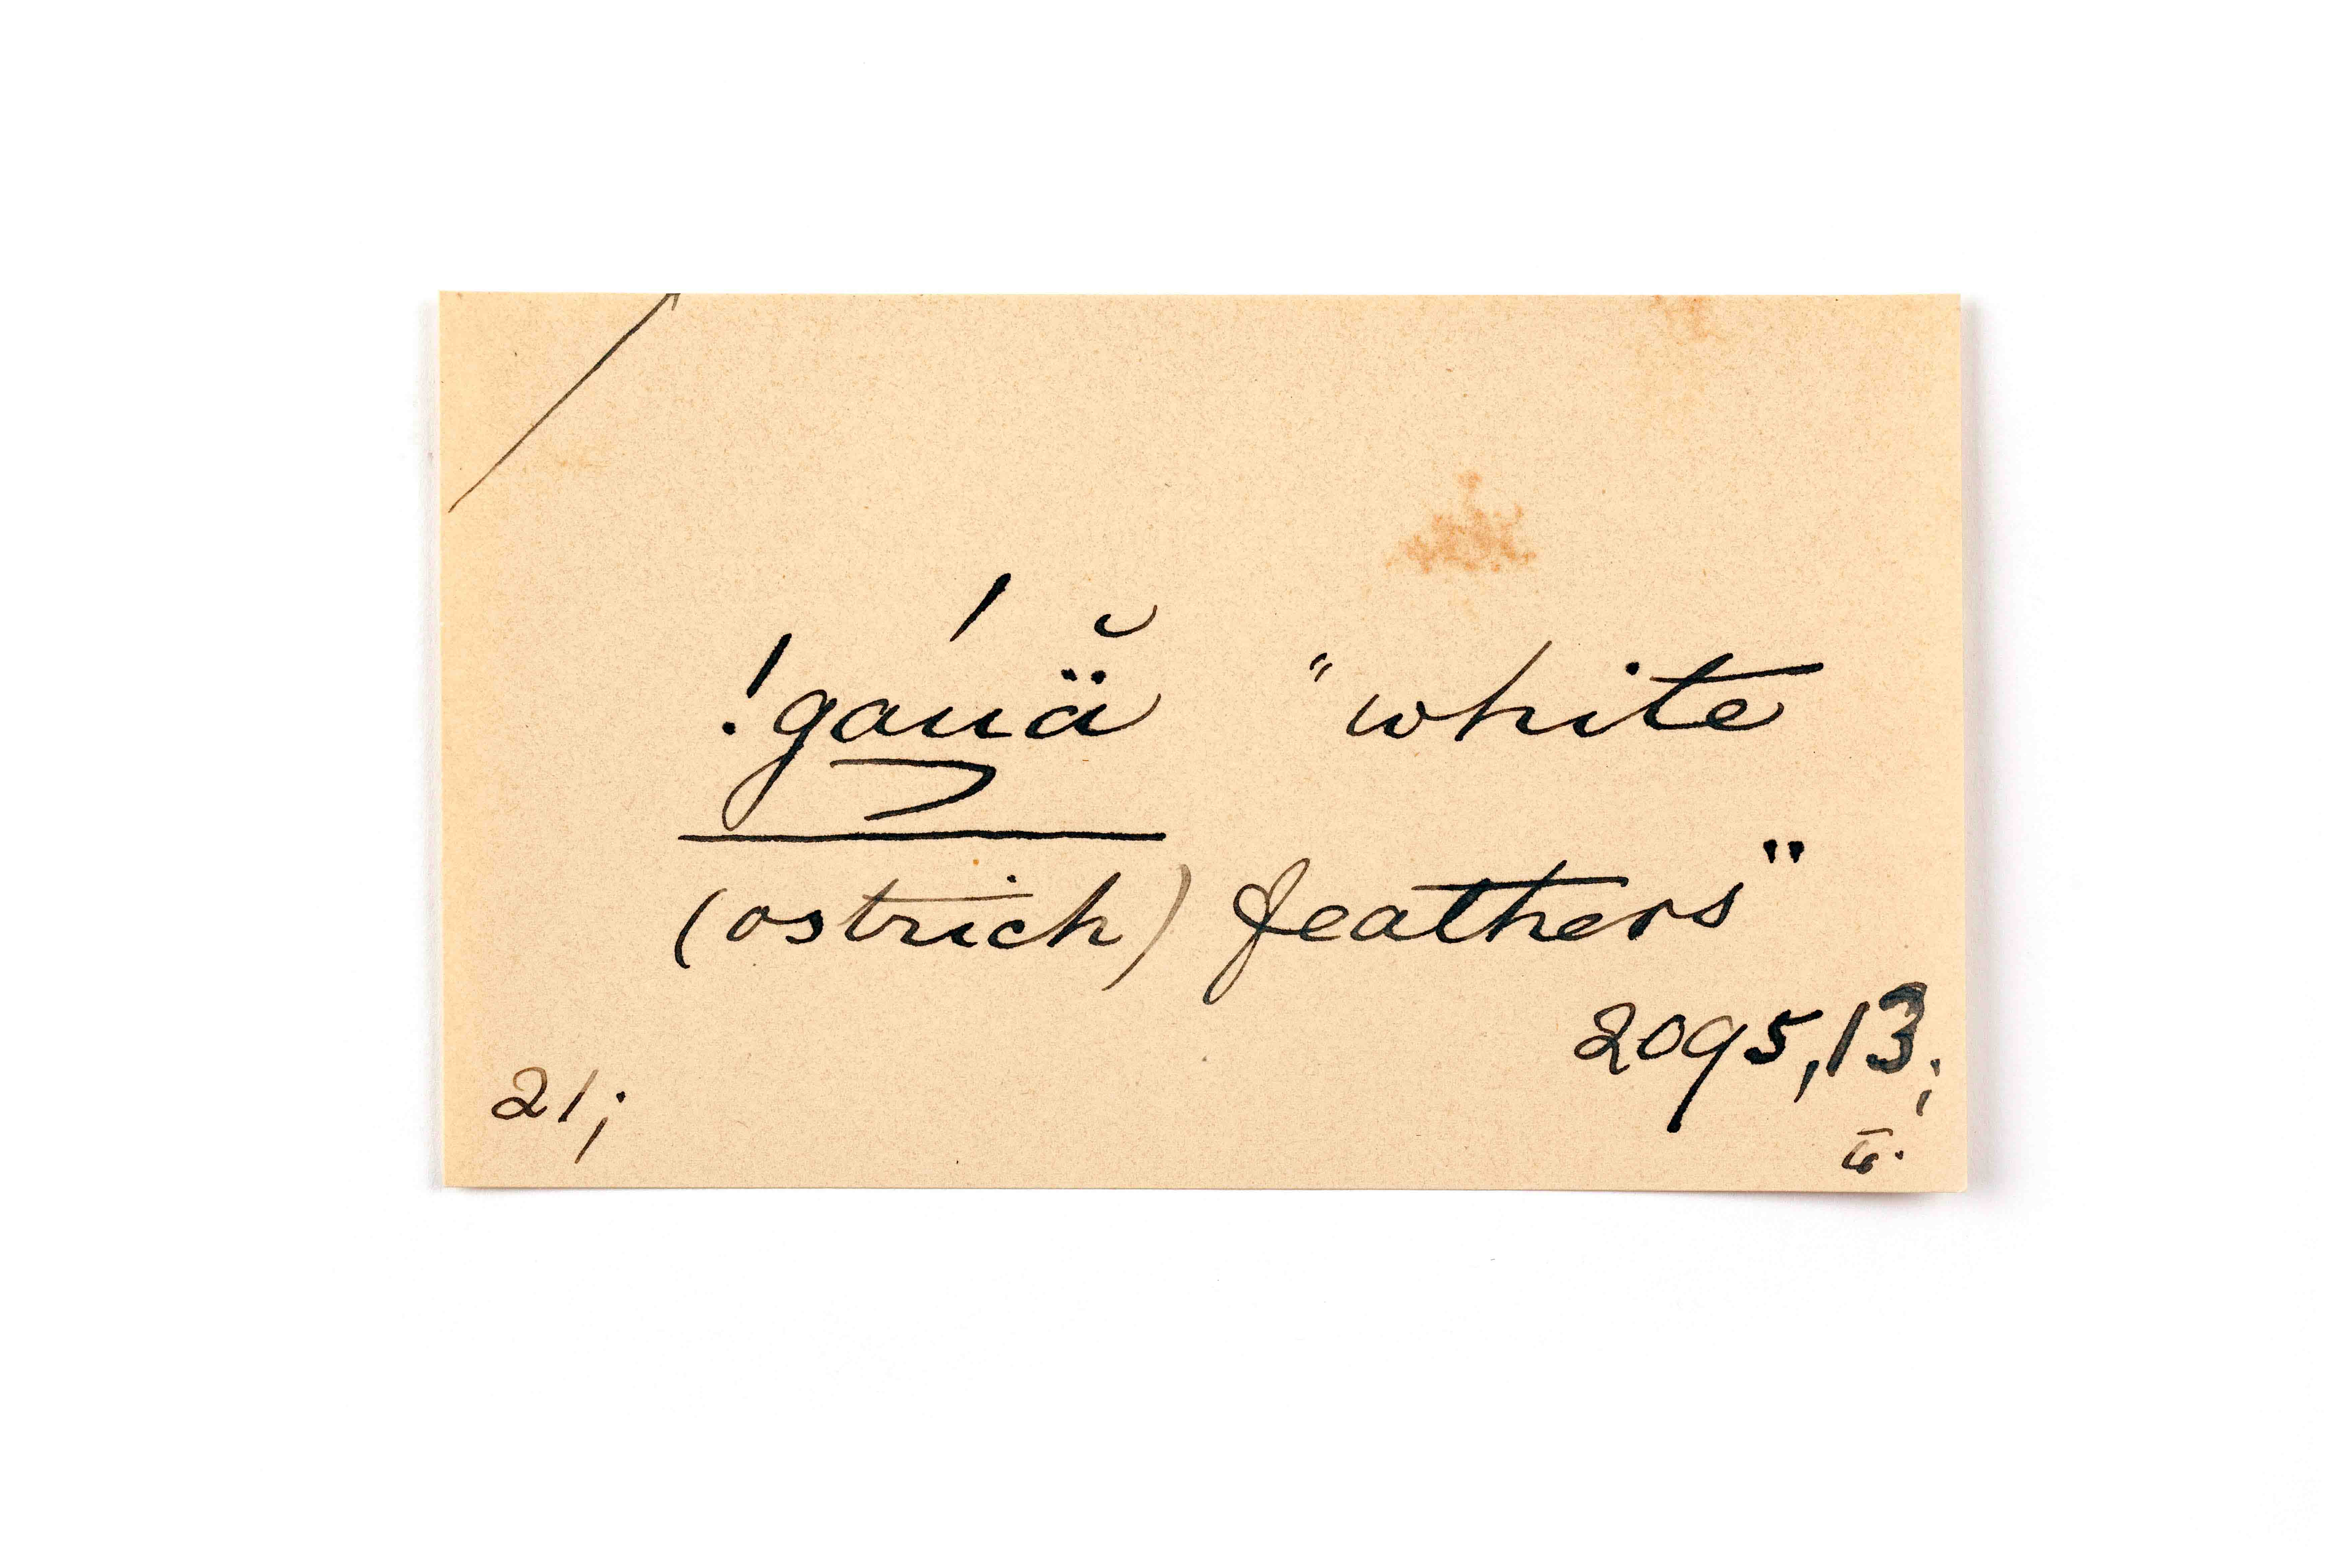 !gáuä̆ "white
(ostrich) feathers"
2095,13;
21;